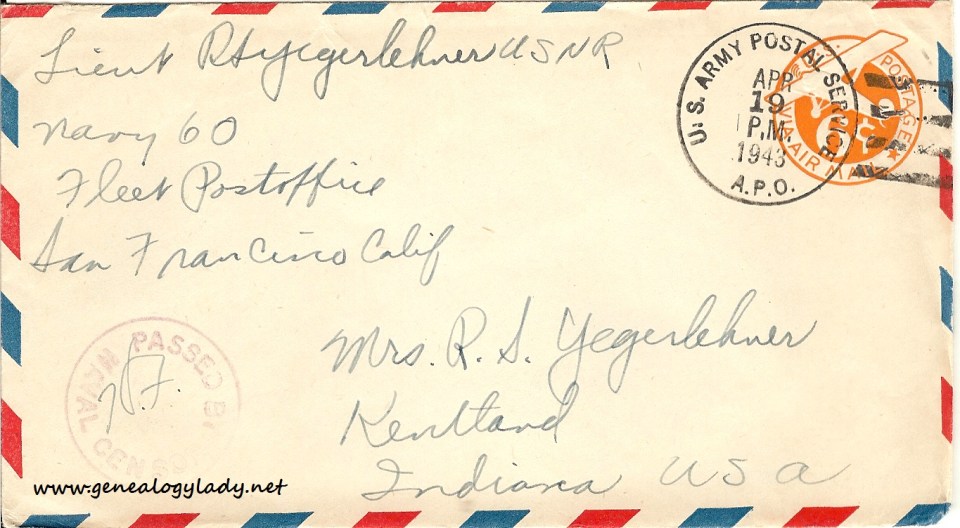 Lieut RS Yegerlehner USNR
Navy 60
Fleet Postoffice
San Francisco Calif
U.S. ARMY POSTAL SERVICE
APR
19
P.M.
1943
A.P.O.
POSTAGE
VIA AIR MAIL
6¢
PASSED BY
NAVAL CENSOR
Mrs. R. S. Yegerlehner
Kentland
Indiana USA
www.genealogylady.net